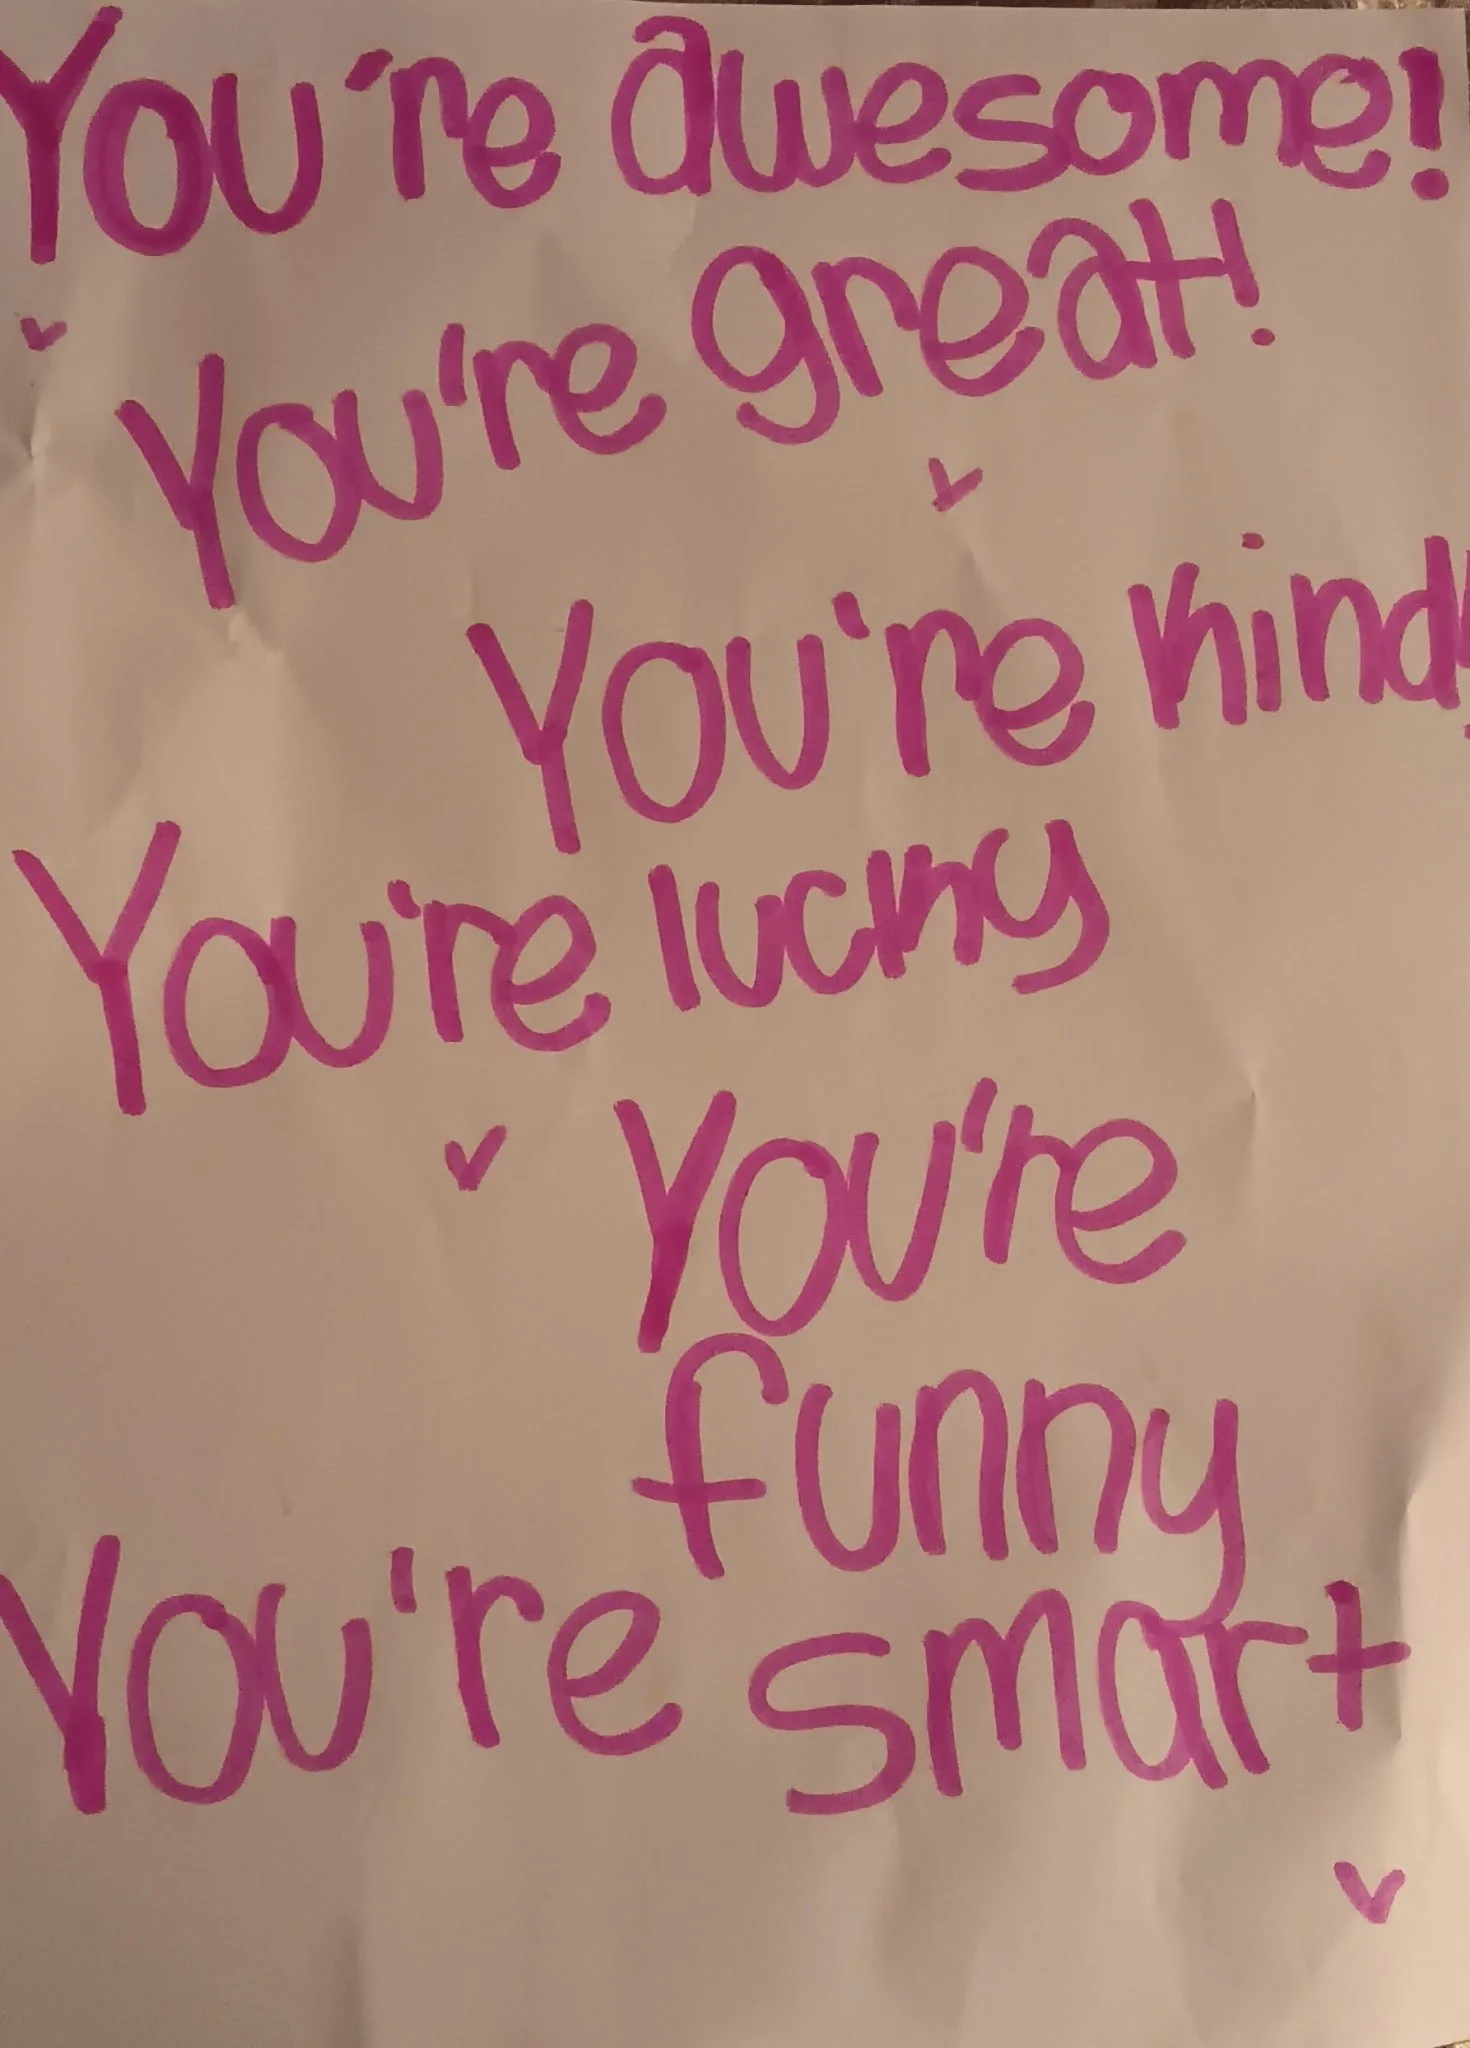 You're awesome!
You're great!
You're kind!
You're lucky
You're
funny
You're smart